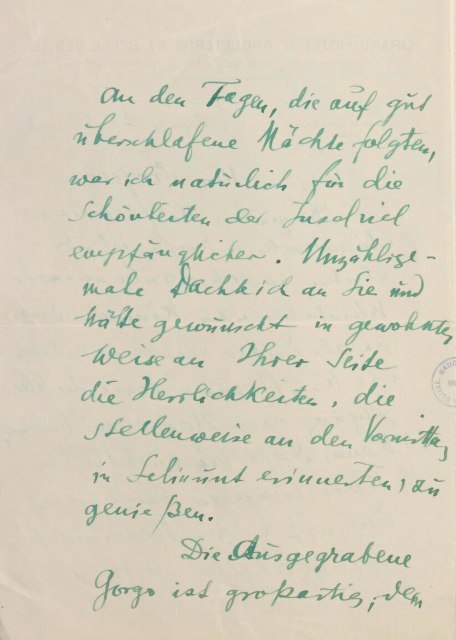 An den Tagen, die auf gut
überschlafene Nächte folgten,
war ich natürlich für die
Schönheiten der Insel viel
empfänglicher. Unzählige-
male Dacht ich an Sie und
hätte gewünscht in gewohnter
Weise an Ihrer Seite
die Herrlichkeiten, die
stellenweise an den Vormittag
in Selinunt erinnerten, zu
genießen.
Die Ausgegrabene
Gorgo ist großartig, dem